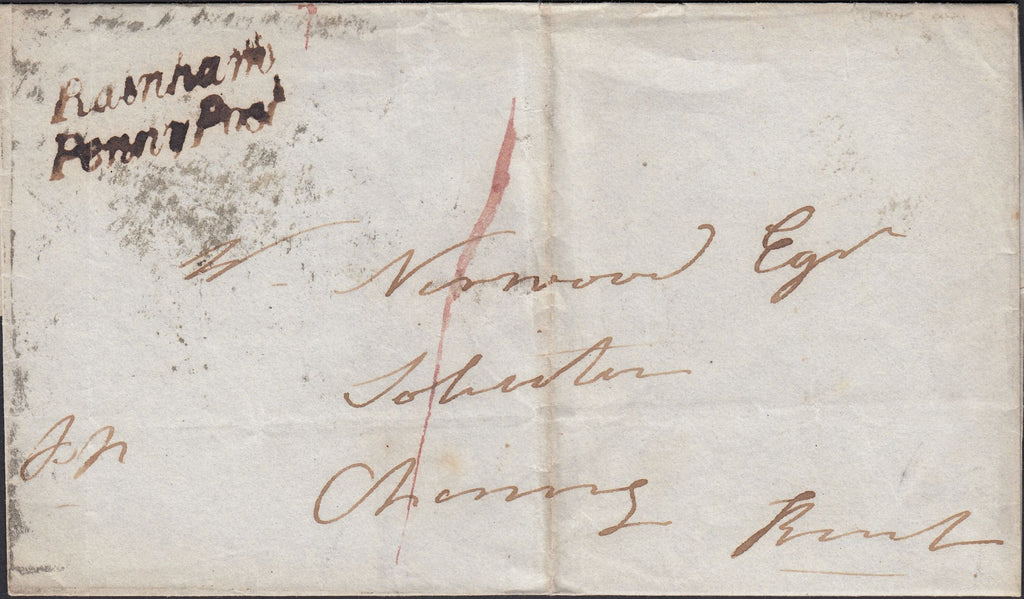 Rainham
Penny Post
1
W. Norwood Esqr
Solicitor
Charing
Kent